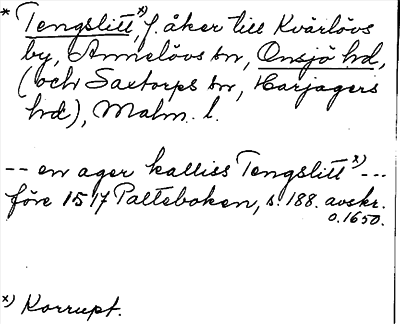 * Tengslitt x), f. åker till Kvärlövs
by, Annelövs sn, Onsjö hd,
(och Saxtorps sn, Harjagers
hd), Malm. l.
-- en ager kalliss Tengslitt x) ---
före 1517 Palteboken, s. 188. avskr.
o. 1650.
x) Korrupt.